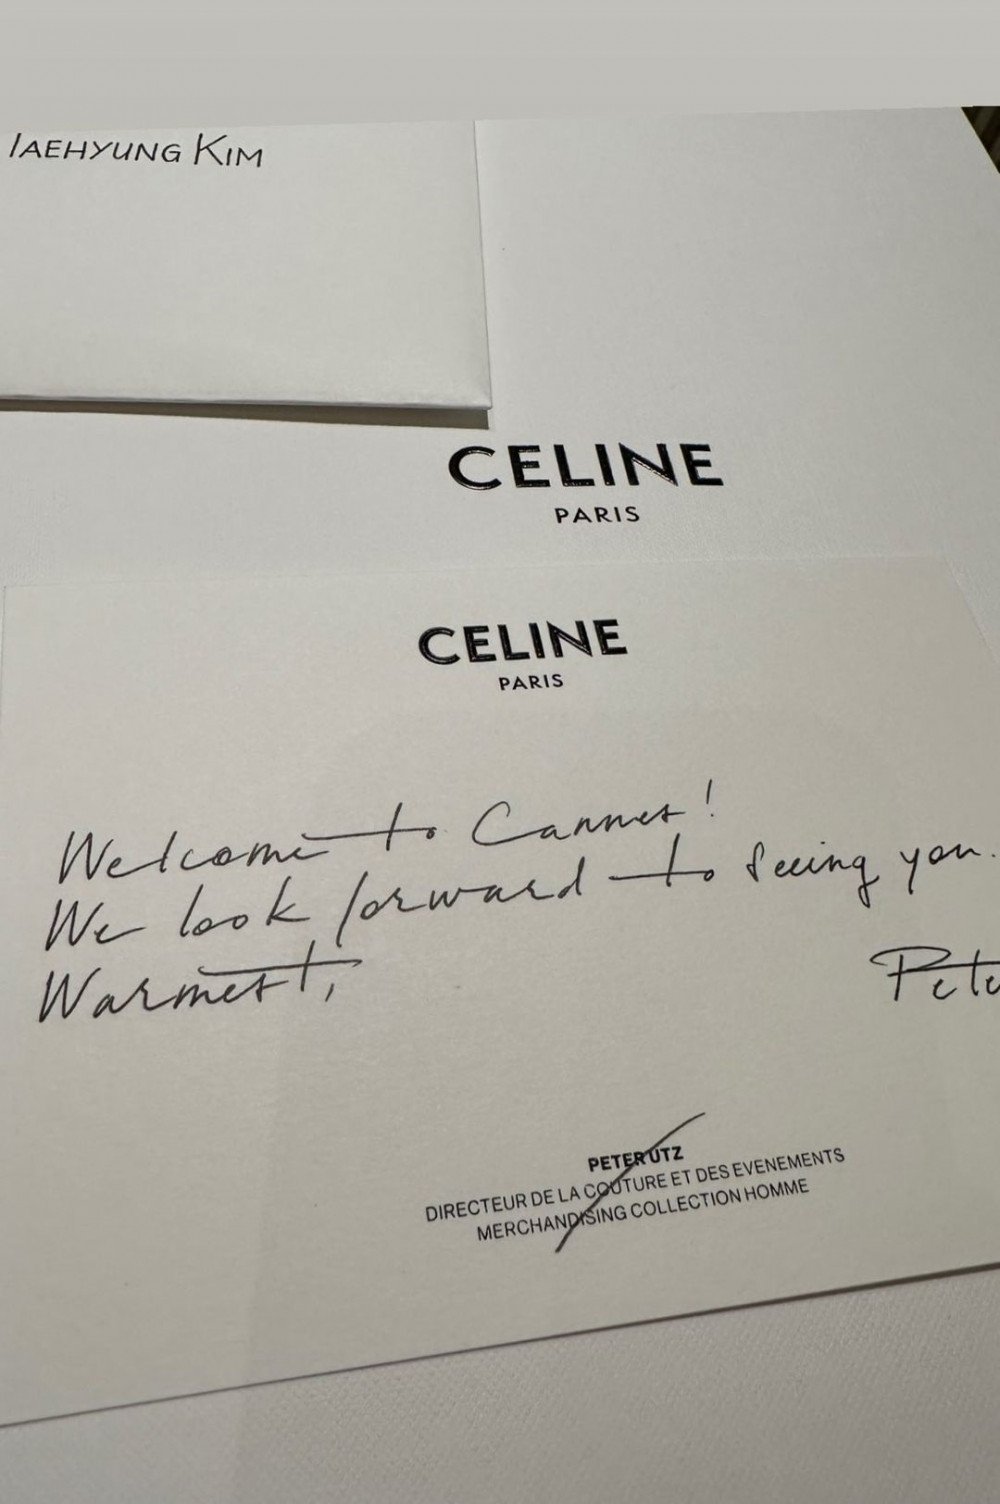 TAEHYUNG KIM
CELINE
PARIS
CELINE
PARIS
Welcome to Cannes!
We look forward to seeing you.
Warmest,
Pete
PETER UTZ
DIRECTEUR DE LA COUTURE ET DES EVENEMENTS
MERCHANDISING COLLECTION HOMME